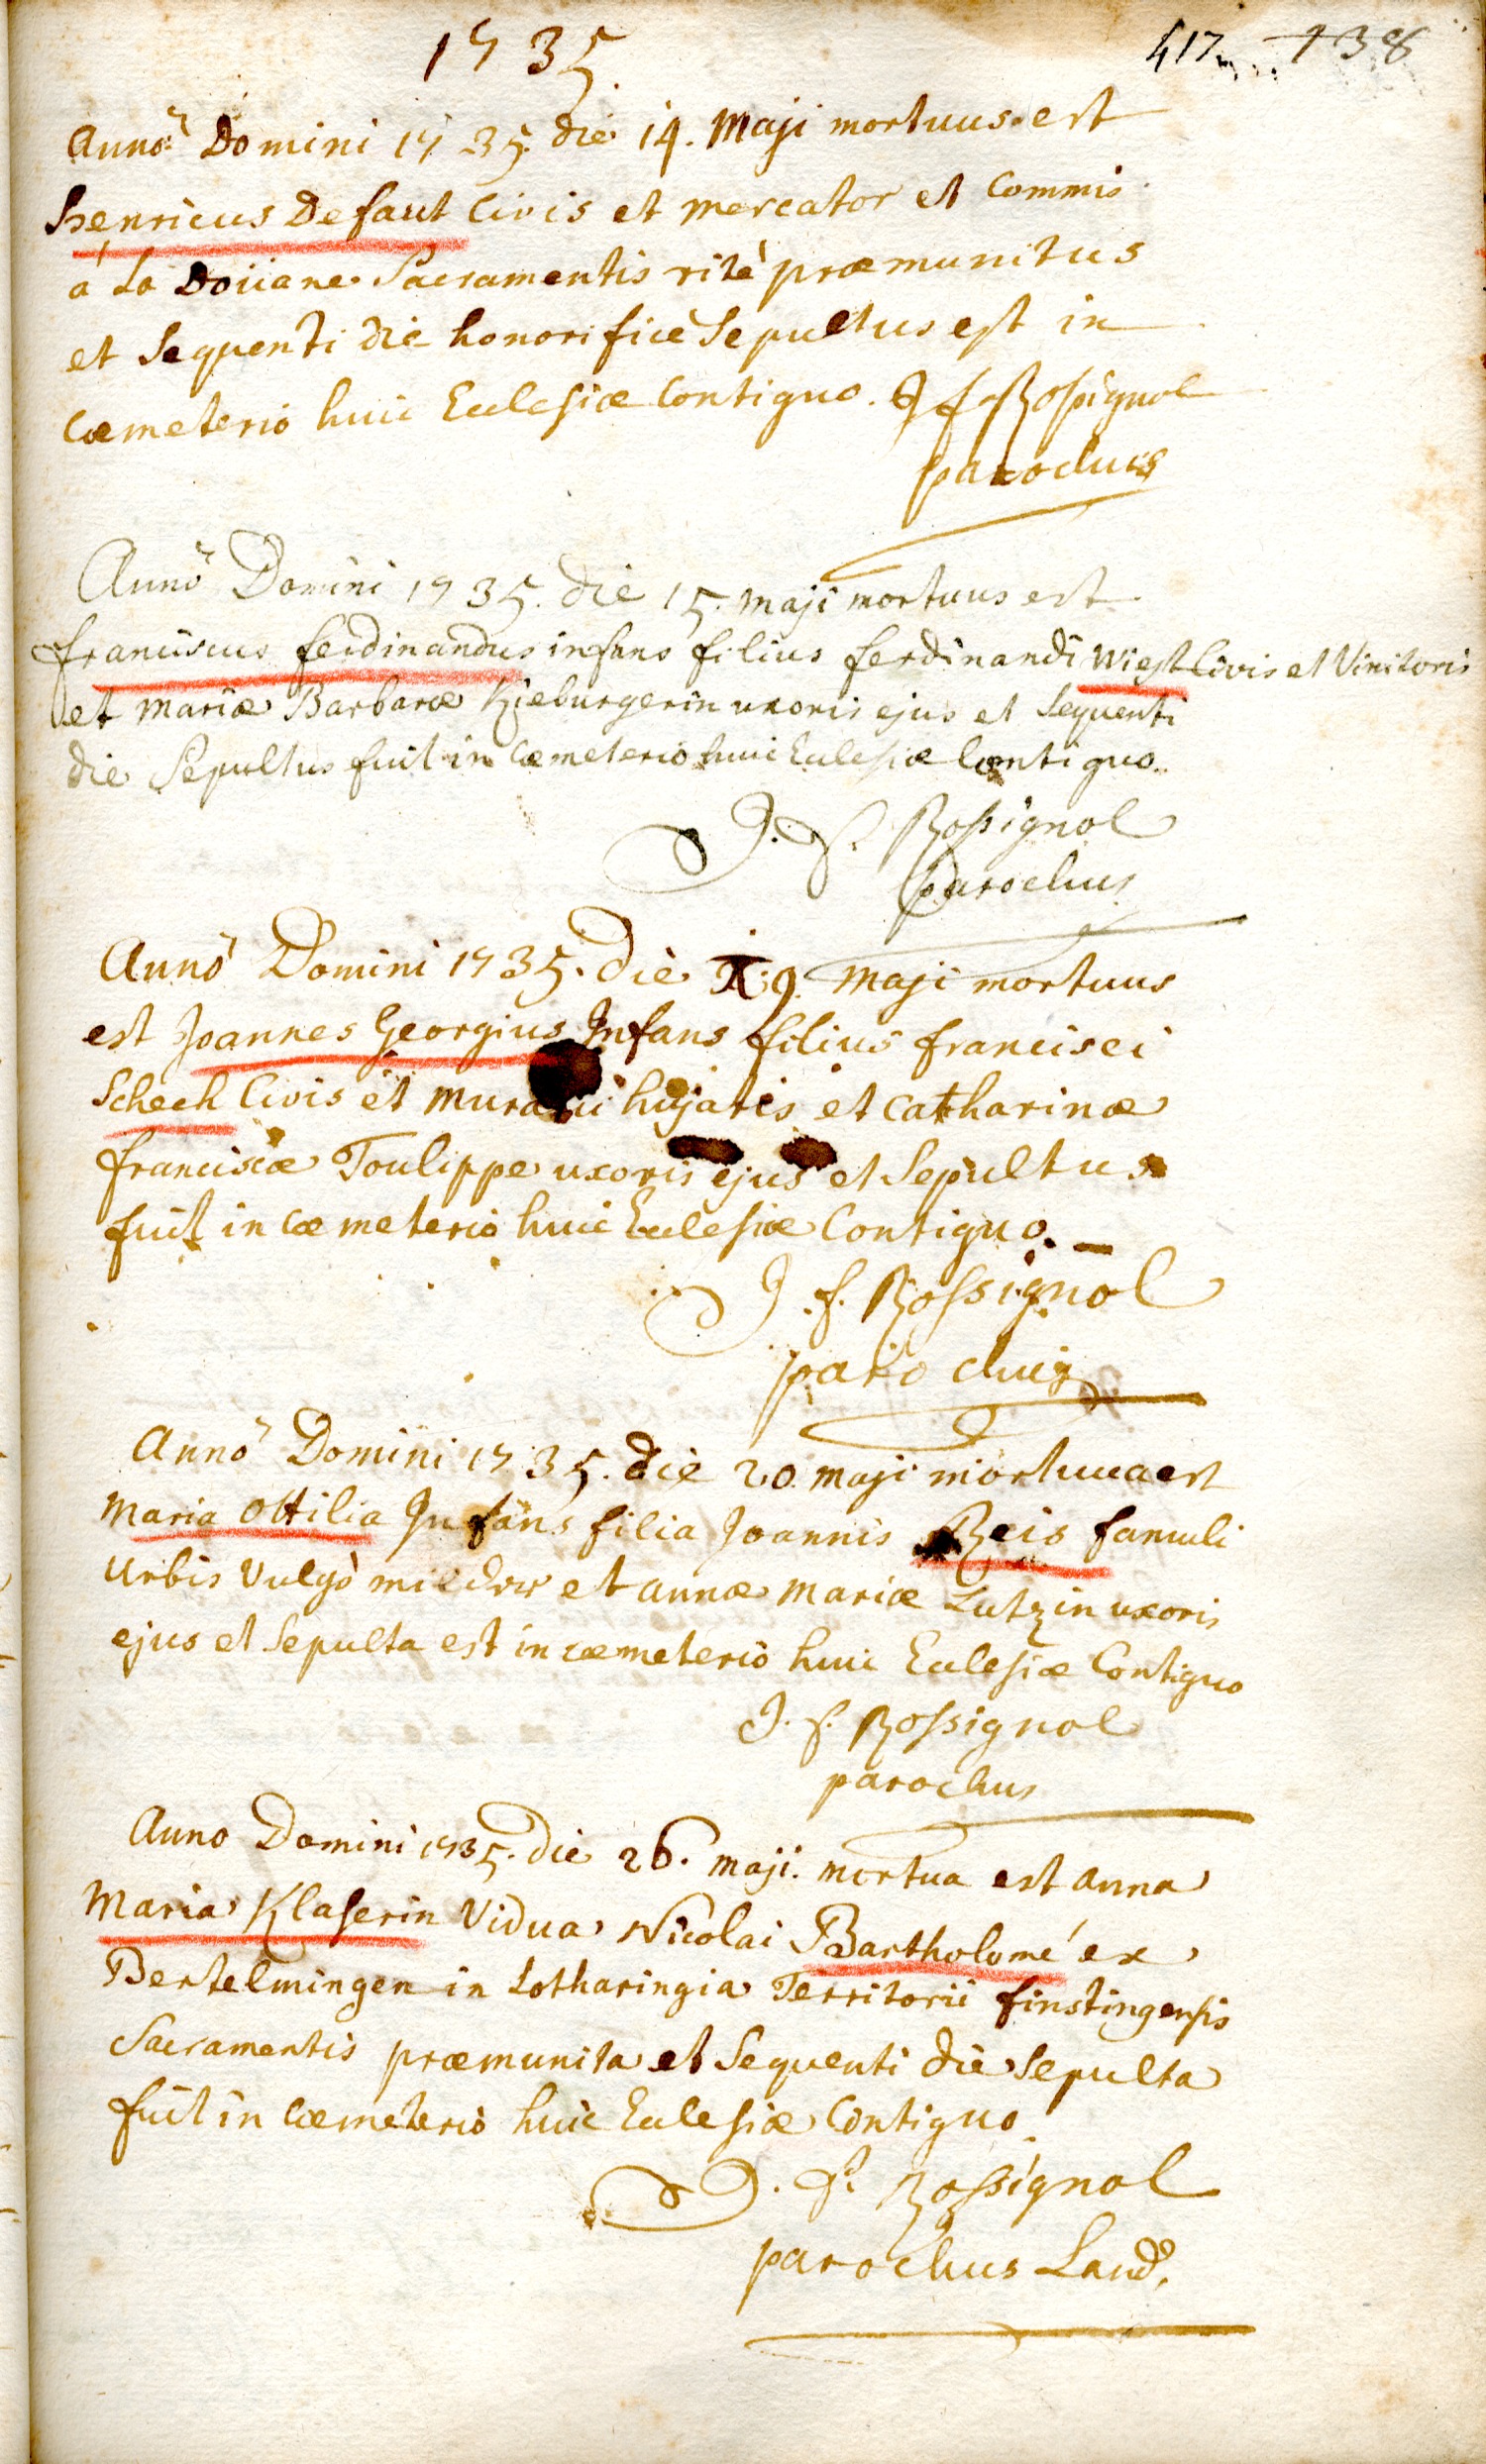 1735
417. 138
Anno Domini 1735. die 14. Maji mortuus est
Henricus Defaut Civis et mercator et Commis
á La Doüane Sacramentis ritè præmunitus
et sequenti die honorificè Sepultus est in
Cœmeterio huic Ecclesiæ Contiguo. J f Rossignol
parochus
Anno Domini 1735. die 15. maji mortuus est
franciscus ferdinandus infans filius ferdinandi Wiest Civis et Vinitoris
et mariæ Barbaræ Kieburgerin uxoris ejus et sequenti
die Sepultus fuit in Cœmeterio huic Ecclesiæ Contiguo.
J. f. Rossignol
parochus
Anno Domini 1735. die 19. maji mortuus
est Joannes Georgius Infans filius francisci
Schech Civis et murarii hujatis et catharinæ
franciscæ Toulippe uxoris ejus et Sepultus
fuit in cœmeterio huic Ecclesiæ Contiguo.
J. f. Rossignol
parochus
Anno Domini 1735. die 20. maji mortua est
Maria Ottilia Infans filia Joannis Reis famuli
Urbis Vulgò et annæ Mariæ Lutzin uxoris
ejus et Sepulta est in cœmeterio huic Ecclesiæ Contiguo
J. f. Rossignol
parochus
Anno Domini 1735. die 26. maji. mortua est anna
Maria Klaserin Vidua Nicolai Bartholomé ex
Bertelmingen in Lotharingia Territorii finstingensis
Sacramentis præmunita et Sequenti die Sepulta
fuit in Cœmeterio huic Ecclesiæ Contiguo.
J. f. Rossignol
parochus Land.